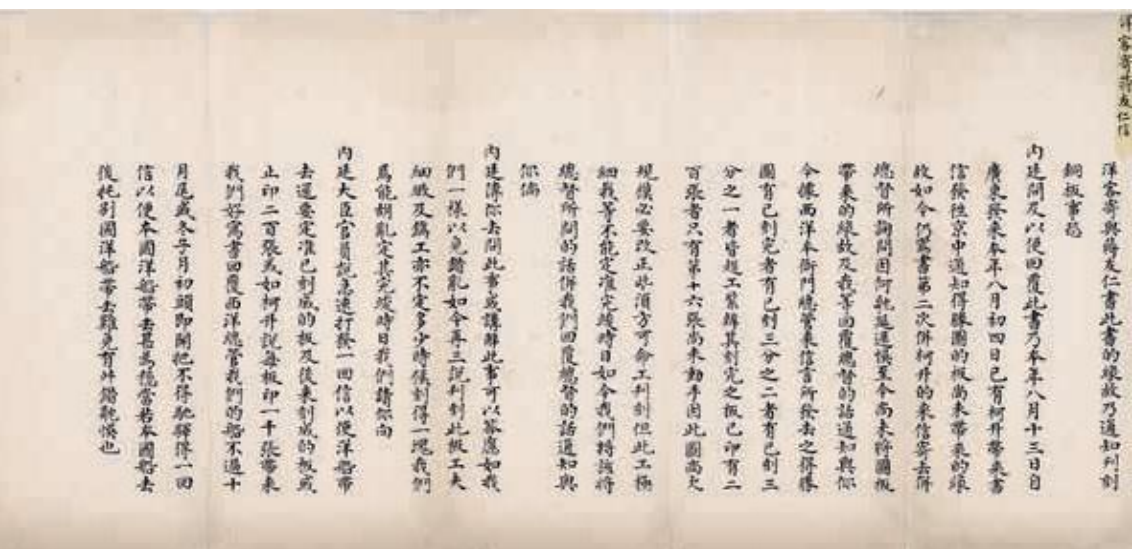 洋客寄蔣友仁信
洋客寄與蔣友仁書此書的緣故乃通知刊刻
銅板事恐
內廷問及以便回覆此書乃本年八月十三日自
廣東發來本年八月初四日已有柯升帶來書
信發往京中通知得勝圖的板尚未帶來的緣
故如今仍寫書第二次併柯升的來信寄去併
總督所詢問因何躭延遲悞至今尚未將圖板
帶來的緣故及我等回覆總督的話通知與你
今據西洋本衙門總管來信言所發去之得勝
圖有已刻完者有已刻三分之二者有已刻三
分之一者皆趕工緊辦其刻完之板已印有二
百張者只有第十六張尚未動手因此圖尚欠
規模必要改正些須方可命工刊刻但此工極
細我等不能定准完竣時日如今我們特該將
總督所問的話併我們回覆總督的話通知與
你倘
內廷傳你去問此事或講解此事可以答應如我
們一樣以免錯亂如今再三說刊刻此板工夫
細緻及鐫工亦不定多少時候刻得一塊我們
焉能胡亂定其完竣時日我們請你向
內廷大臣官員說急速打發一回信以便洋船帶
去還要定准已刻成的板及後來刻成的板或
止印二百張或如柯升說每板印一千張帶來
我們好寫書回覆西洋總管我們的船不過十
月尾或冬子月初頭即開把不得馳驛得一回
信以便本國洋船帶去甚為穩當若本國船去
後托別國洋船帶去難免有舛錯躭悞也